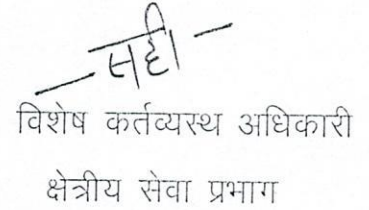 — सही —
विशेष कर्तव्यस्थ अधिकारी
क्षेत्रीय सेवा प्रभाग